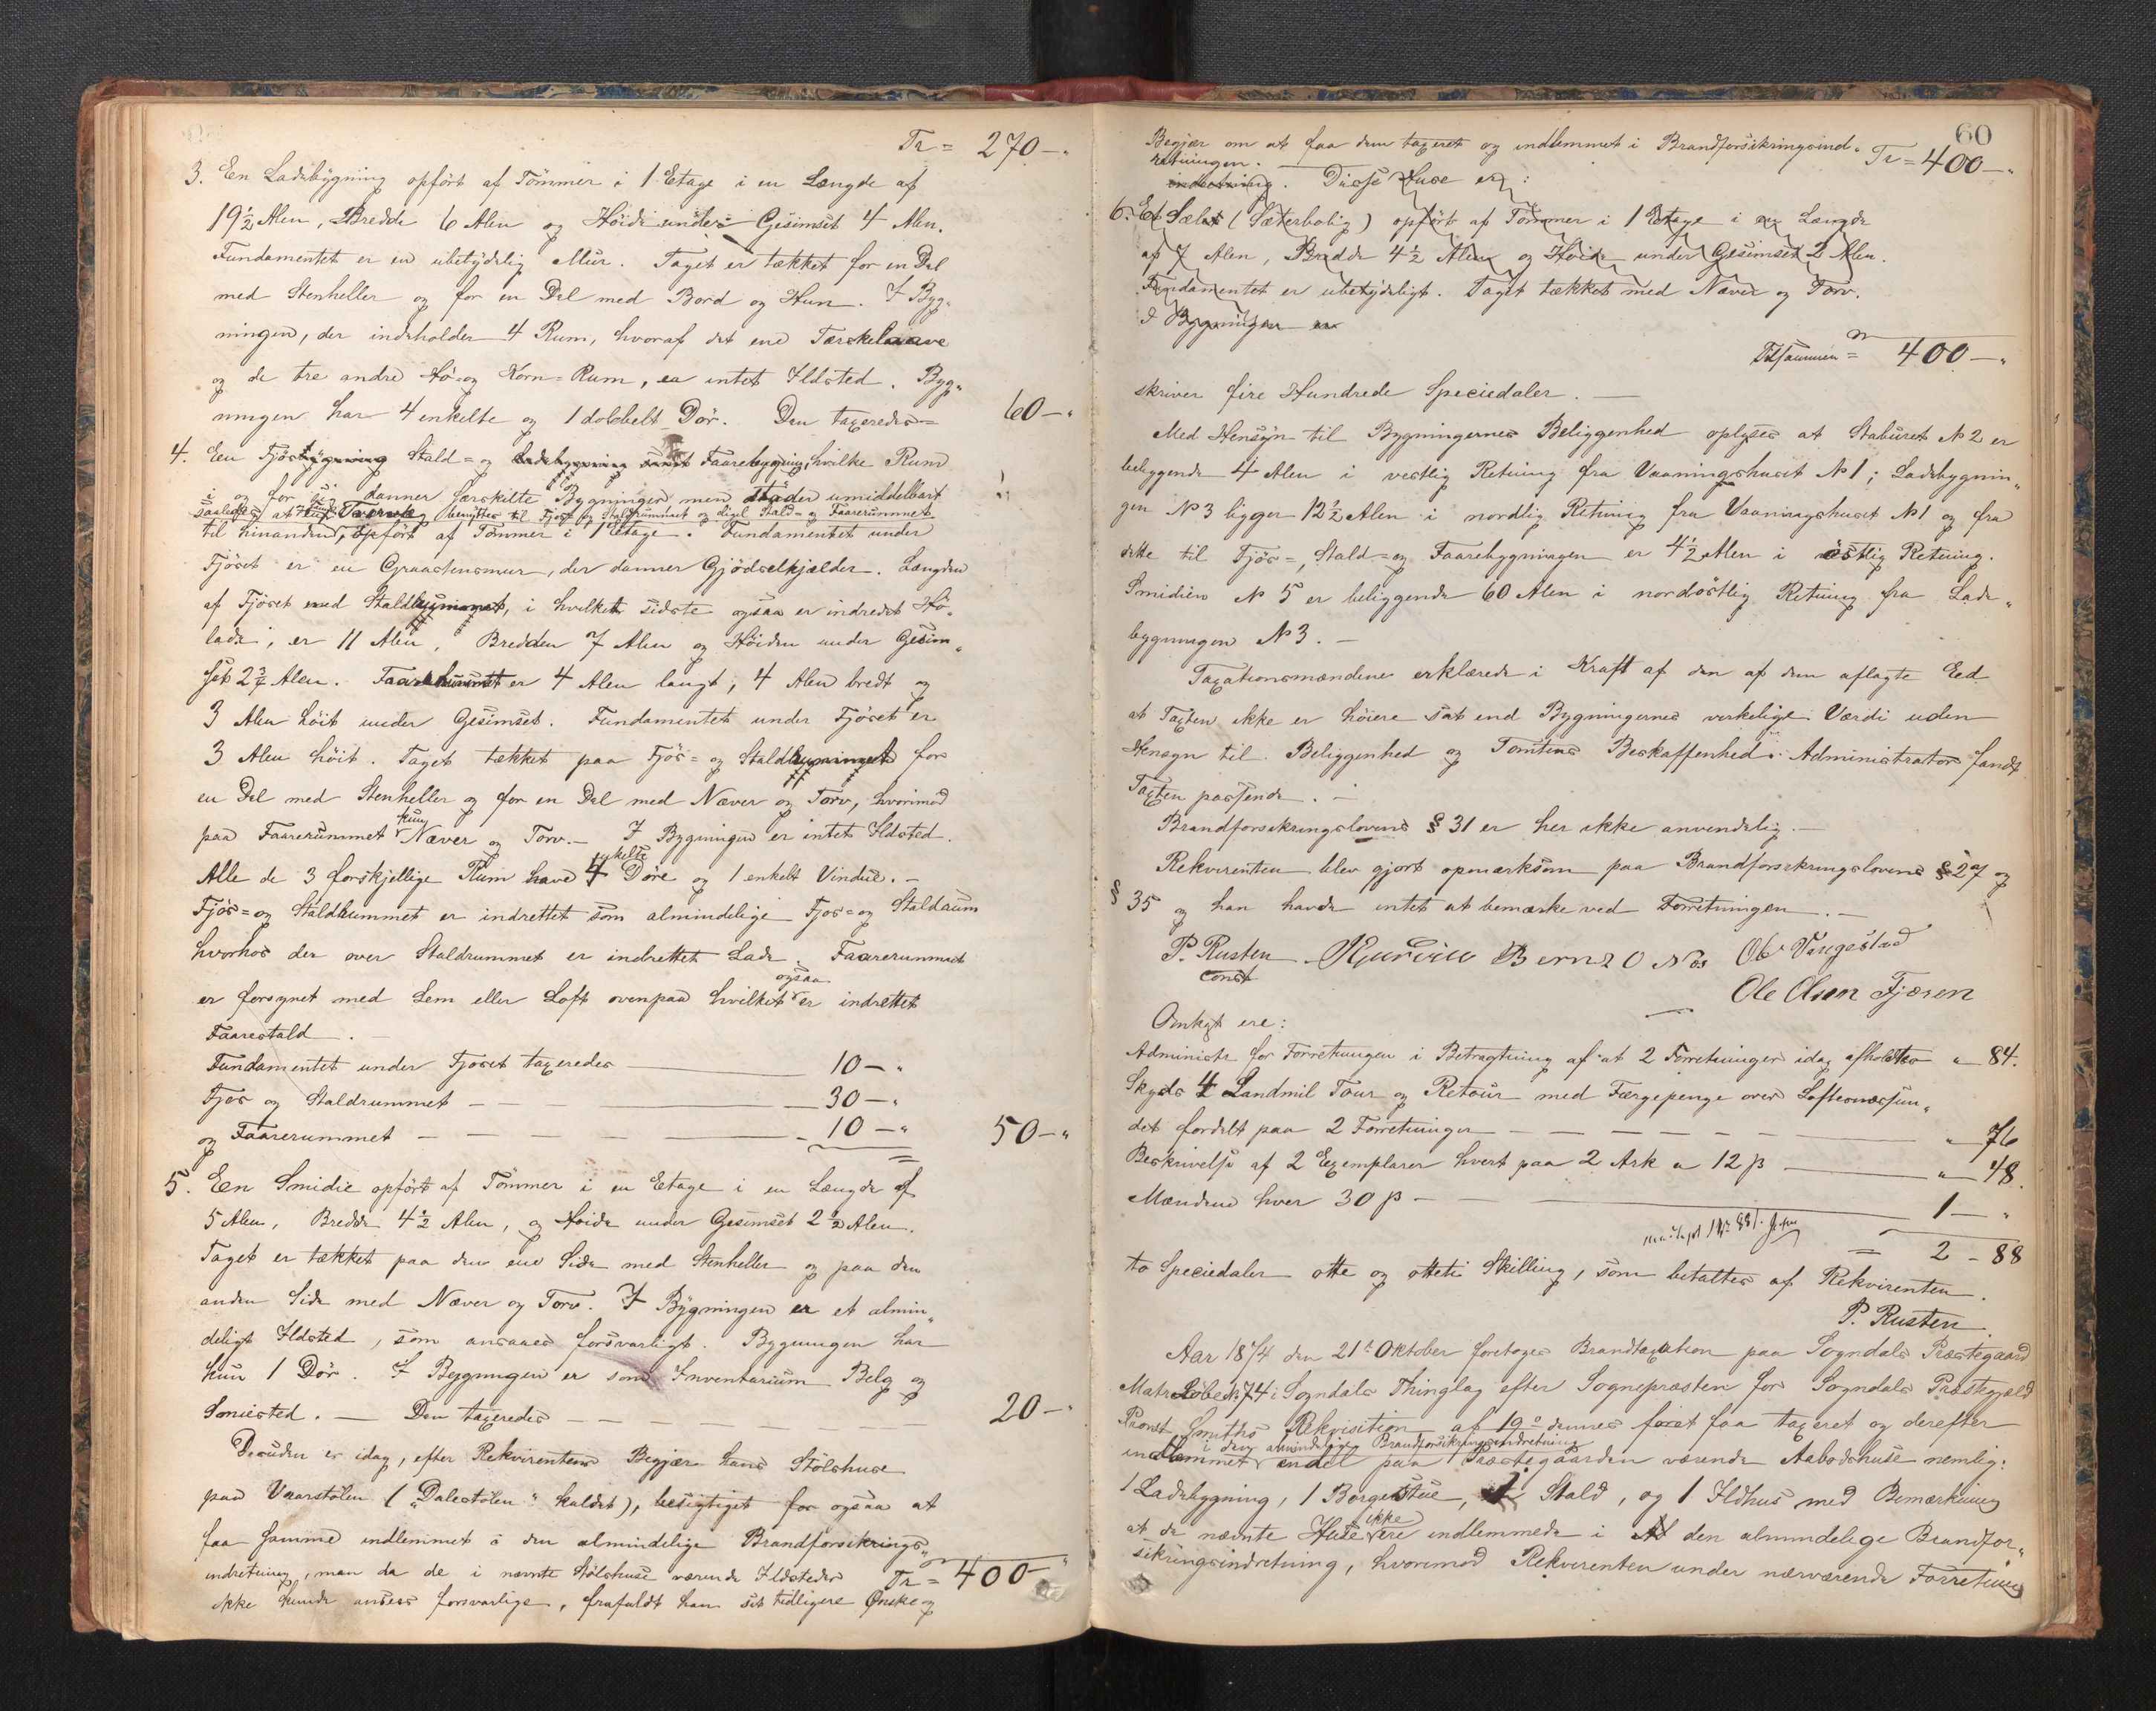 Tr = 270 – "
3. En Ladebygning opført af Tømmer i 1 Etage i en Længde af
19½ Alen, Bredde 6 Alen og Høide under Gesimset 4 Alen.
Fundamentet er en ubetydelig Mur. Taget er tækket for en Del
med Stenheller og for en Del med Bord og Hun. I Byg-
ningen, der indeholder 4 Rum, hvoraf det ene Tærskelaave
og de tre andre Hø- og Korn-Rum, er intet Ildsted. Byg-
ningen har 4 enkelte og 1 dobbelt Dør. Den taxeredes = 60 – "
4. Een Fjøsbygning Stald- og Ladebygning samt Faarebygning, hvilke Rum
i og for sig danner særskilte Bygninger men støder umiddelbart
saaledes at benyttes til Fjøs og Staldrummet og ligel Stald- og Faarerummet
til hinanden, opført af Tømmer i 1 Etage. Fundamentet under
Fjøset er en Graastensmur, der danner Gjødselkjælder. Længden
af Fjøset med Staldrummet, i hvilket sidste ogsaa er indredet Hø-
lade, er 11 Alen, Bredden 7 Alen og Høiden under Gesim-
set 2¾ Alen. Faarerummet er 4 Alen langt, 4 Alen bredt og
3 Alen høit under Gesimset. Fundamentet under Fjøset er
3 Alen høit. Taget tækket paa Fjøs- og Staldrummet for
en Del med Stenheller og for en Del med Næver og Torv, hvorimod
paa Faarerummet kun Næver og Torv. – I Bygningen er intet Ildsted.
Alle de 3 forskjellige Rum have 4 enkelte Døre og 1 enkelt Vindue. –
Fjøs- og Staldrummet er indrettet som almindelige Fjos- og Staldrum
hvorhos der over Staldrummet er indrettet Lade. Faarerummet
er forsynet med Lem eller Loft ovenpaa hvilket ogsaa er indrettet
Faarestald. –
Fundamentet under Fjøset taxeredes 10 – "
Fjøs og Staldrummet – 30 – "
og Faarerummet – 10 – " 50 – "
5. Een Smidie opført af Tømmer i en Etage i en Længde af
5 Alen, Bredde 4½ Alen, og Høide under Gesimset 2½ Alen.
Taget er tækket paa den ene Side med Stenheller og paa den
anden Side med Næver og Torv. I Bygningen er et almin-
deligt Ildsted, som ansaaes forsvarligt. Bygningen har
kun 1 Dør. I Bygningen er som Inventarium Belg og
Smiested. – Den taxeredes – 20 – "
Desuden er idag, efter Rekvirentens Begjær hans Stølshuse
paa Vaarstølen ("Dalestølen" kaldet), besigtiget for ogsaa at
faa samme indlemmet i den almindelige Brandforsikrings-
indretning, men da de i nævnte Stølshuse værende Ildsteder Tr = 400 – "
ikke kunde ansees forsvarlige, frafaldt han sit tidligere Ønske og
60
Begjær om at faa dem taxeret og indlemmet i Brandforsikringsind- Tr = 400 – "
retningen.
indretning. Disse Huse er:
6. Et Sælet (Sæterbolig) opført af Tømmer i 1 Etage i en Længde
af 7 Alen, Bredde 4½ Alen og Høide under Gesimset 2 Alen.
Fundamentet er ubetydeligt. Taget tækket med Næver og Torv.
I Bygningen er
Tilsammen = 400 – "
skriver fire Hundrede Speciedaler. –
Med Hensyn til Bygningernes Beliggenhed oplyses at Staburet № 2 er
beliggende 4 Alen i vestlig Retning fra Vaaningshuset № 1; Ladebygnin-
gen № 3 ligger 12½ Alen i nordlig Retning fra Vaaningshuset № 1 og fra
dette til Fjøs-, Stald- og Faarebygningen er 4½ Alen i østlig Retning.
Smidien № 5 er beliggende 60 Alen i nordøstlig Retning fra Lade-
bygningen № 3. –
Taxationsmændene erklærede i Kraft af den af dem aflagte Eed
at Taxten ikke er høiere sat end Bygningernes virkelige Værdi uden
Hensyn til Beliggenhed og Tomtens Beskaffenhed. Administrator fandt
Taxten passende. –
Brandforsikringslovens § 31 er her ikke anvendelig. –
Rekvirenten blev gjort opmærksom paa Brandforsikringslovens § 27 og
§ 35 og han havde intet at bemærke ved Forretningen. –
P. Rusten
const
Ole Olsen Fjæren
Omkgt ere:
Administr for Forretningen i Betragtning af at 2 Forretninger idag afholdtes " – 84.
Skyds 4 Landmil Tour og Retour med Færgepenge over Loftesnæssun-
det fordelt paa 2 Forretninger – " – 76
Beskrivelse af 2 Exemplarer hvert paa 2 Ark a 12 β – " – 48.
Mændene hver 30 β – 1 – "
= 2 – 88
to Speciedaler otte og otteti Skilling, som betaltes af Rekvirenten.
P. Rusten.
Aar 1874 den 21de Oktober foretoges Brandtaxation paa Sogndals Præstegaard
Matr Løbe № 74 i Sogndals Thinglag efter Sognepræsten for Sogndals Præstegjæld
Provst Smiths Rekvisition af 19de dennes for at faa taxeret og derefter
i den almindelige Brandforsikringsindretning
indlemmet endel paa Præstegaarden værende Aabodshuse nemlig:
1 Ladebygning, 1 Borgestue, 1 Stald, og 1 Ildhus med Bemærkning
at de nævnte Huse ikke ere indlemmede i den almindelige Brandfor-
sikringsindretning, hvorimod Rekvirenten under nærværende Forretning